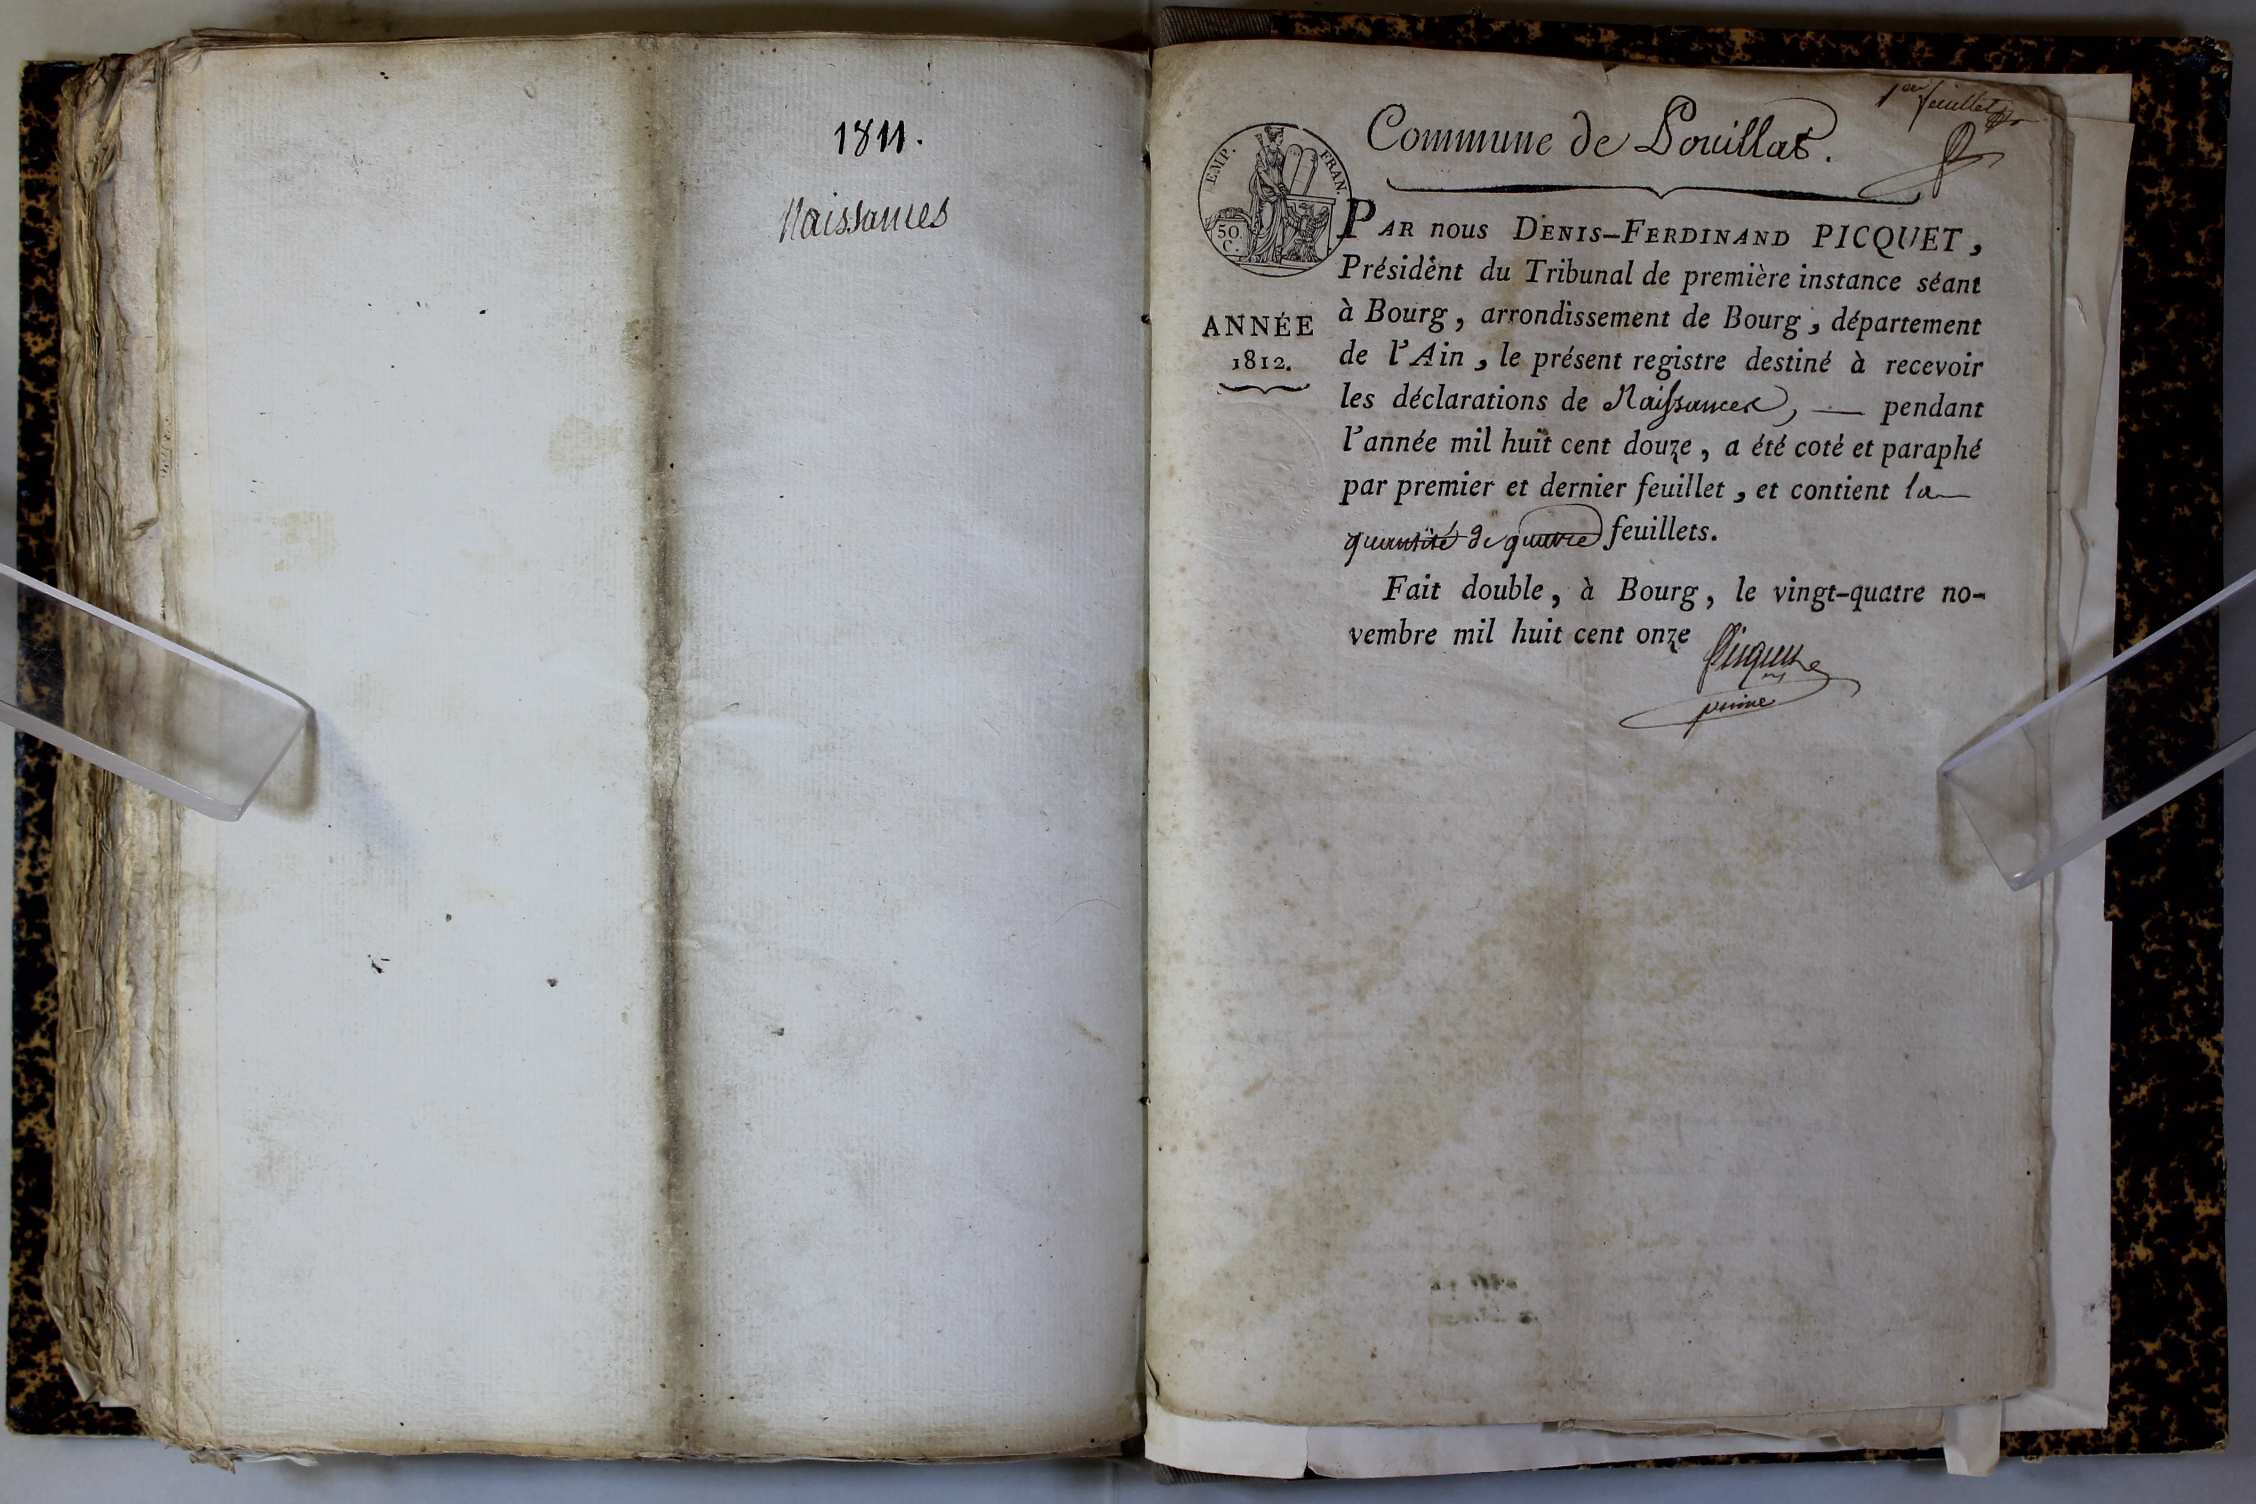 1811.
Naissances
1er feuillet
Commune de Pouillat.
EMP. FRAN.
50. C.
PAR nous DENIS-FERDINAND PICQUET,
Président du Tribunal de première instance séant
à Bourg, arrondissement de Bourg, département
de l'Ain, le présent registre destiné à recevoir
les déclarations de Naissances, — pendant
l'année mil huit cent douze, a été coté et paraphé
par premier et dernier feuillet, et contient la
quantité de quatre feuillets.
ANNÉE
1812.
Fait double, à Bourg, le vingt-quatre no-
vembre mil huit cent onze
Picquet